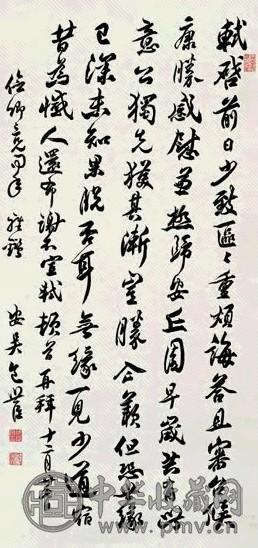 軾啓前日少致區區重煩誨答且審台候
康勝感慰兼極歸安丘園早歲共有此
意公獨先獲其漸豈勝企羨但恐世緣
已深未知果脫否耳無緣一見少道宿
昔為悵人還布謝不宣軾頓首再拜十二月廿七日
儉卿同年雅鑒 安吳包世臣
中华收藏网
www.pmv.cn